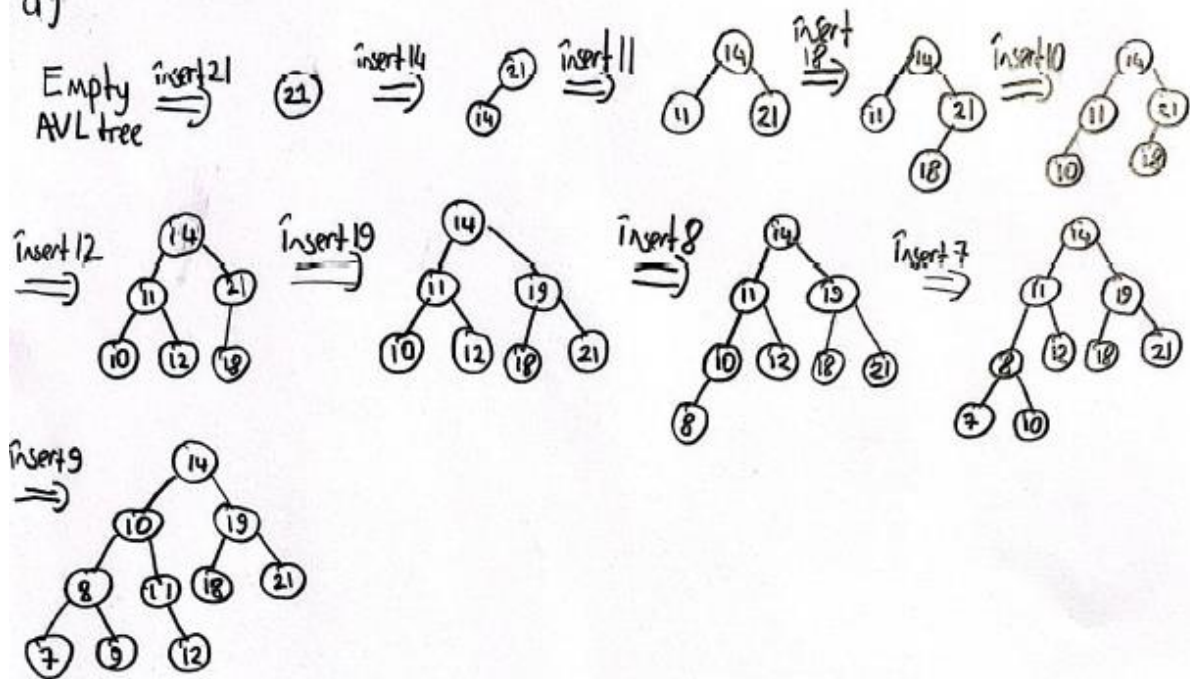 a)
Empty AVL tree
insert 21
21
insert 14
21
14
insert 11
14
11 21
insert 18
14
11 21
18
insert 10
14
11 21
10 18
insert 12
14
11 21
10 12 18
insert 19
14
11 19
10 12 18 21
insert 8
14
11 19
10 12 18 21
8
insert 7
14
11 19
8 12 18 21
7 10
insert 9
14
10 19
8 11 18 21
7 9 12